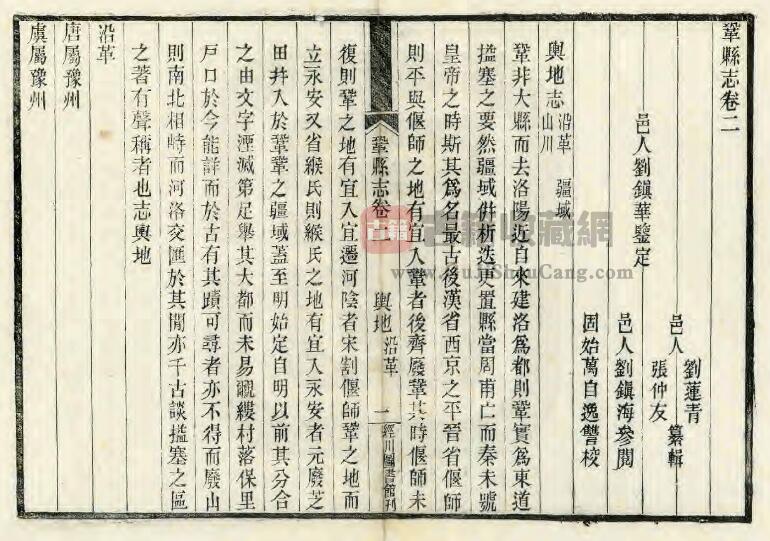 鞏縣志卷二
邑人劉鎮華鑒定
邑人劉蓮青張仲友纂輯
邑人劉鎮海參閱
固始萬自逸讐校
輿地志 沿革 疆域 山川
鞏非大縣而去洛陽近自來建洛爲都則鞏實爲東道
搤塞之要然疆域併析迭更置縣當周甫亡而秦未號
皇帝之時斯其爲名最古後漢省西京之平晉省偃師
則平與偃師之地有宜入鞏者後齊廢鞏其時偃師未
鞏縣志卷二 輿地 沿革 一 經川圖書館刊
復則鞏之地有宜入宜遷河陰者宋割偃師鞏之地而
立永安又省緱氏則緱氏之地有宜入永安者元廢芝
田幷入於鞏鞏之疆域蓋至明始定自明以前其分合
之由文字湮滅第足舉其大都而未易覼縷村落保里
戶口於今能詳而於古有其蹟可尋者亦不得而廢山
則南北相峙而河洛交匯於其閒亦千古談搤塞之區
之著有聲稱者也志輿地
沿革
唐屬豫州
虞屬豫州
古籍收藏網
www.GuJiShouCang.com